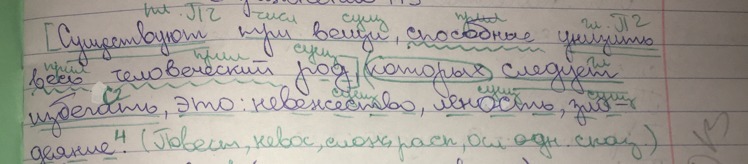 гл. П2 числ сущ прил гл. П2
[Существуют три вещи, способные унизить
прил прил сущ гл
весь человеческий род], (которых следует
С2 сущ сущ сущ
избегать, это: невежество, леность, зло-
деяние.⁴ (Повест, невос, слож, расп, осл. одн. сказ)